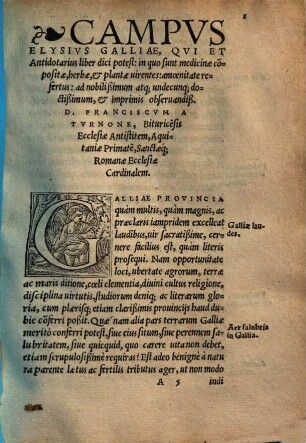 CAMPVS
ELYSIVS GALLIAE, QVI ET
Antidotarius liber dici potest: in quo sunt medicinæ cõ-
positæ, herbæ, & plantæ uirentes: amœnitate re-
fertus: ad nobilißimum atq; undecunq; do-
ctißimum, & imprimis obseruandiß.
D. FRANCISCVM A
TVRNONE, Bituricẽsis
Ecclesiæ Antistitem, Aqui-
taniæ Primatẽ, Sanctæq;
Romanæ Ecclesiæ
Cardinalem.
GALLIAE PROVINCIA
quàm multis, quàm magnis, ac
præclaris iampridem excelleat
laudibus, uir sacratißime, cer-
nere facilius est, quàm literis
prosequi. Nam opportunitate
loci, ubertate agrorum, terræ
Galliæ lau-
des.
ac maris ditione, cœli clementia, diuini cultus religione,
disciplina uirtutis, studiorum deniq; ac literarum glo-
ria, cum plærisq; etiam clarißimis prouincijs haud du-
bie cõferri poßit. Quæ nam alia pars terrarum Galliæ
meritò conferri potest, siue eius situm, siue perennem sa-
lubritatem, siue quicquid, quo carere uta non debet,
etiam scrupulosißimè requiras? Est adeo benignè à natu
ra parente latus ac fertilis tributus ager, ut non modo
Aer salubris
in Gallia.
A 5 indi